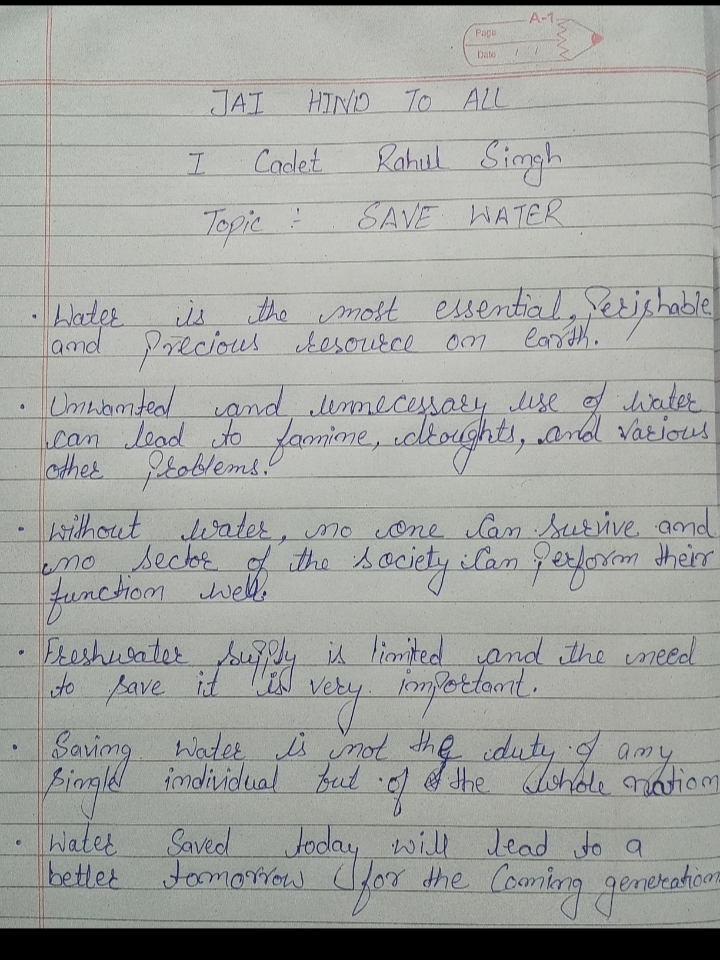 A-1
Page
Date / /
JAI HIND TO ALL
I Cadet Rahul Singh
Topic :- SAVE WATER
• Water is the most essential, Perishable
and precious resource on earth.
• Unwanted and unnecessary use of water
can lead to famine, droughts, and various
other problems.
• Without water, no one can survive and
no sector of the society can perform their
function well.
• Freshwater supply is limited and the need
to save it is very important.
• Saving water is not the duty of any
single individual but of the whole nation
• Water Saved today will lead to a
better tomorrow for the Coming generation